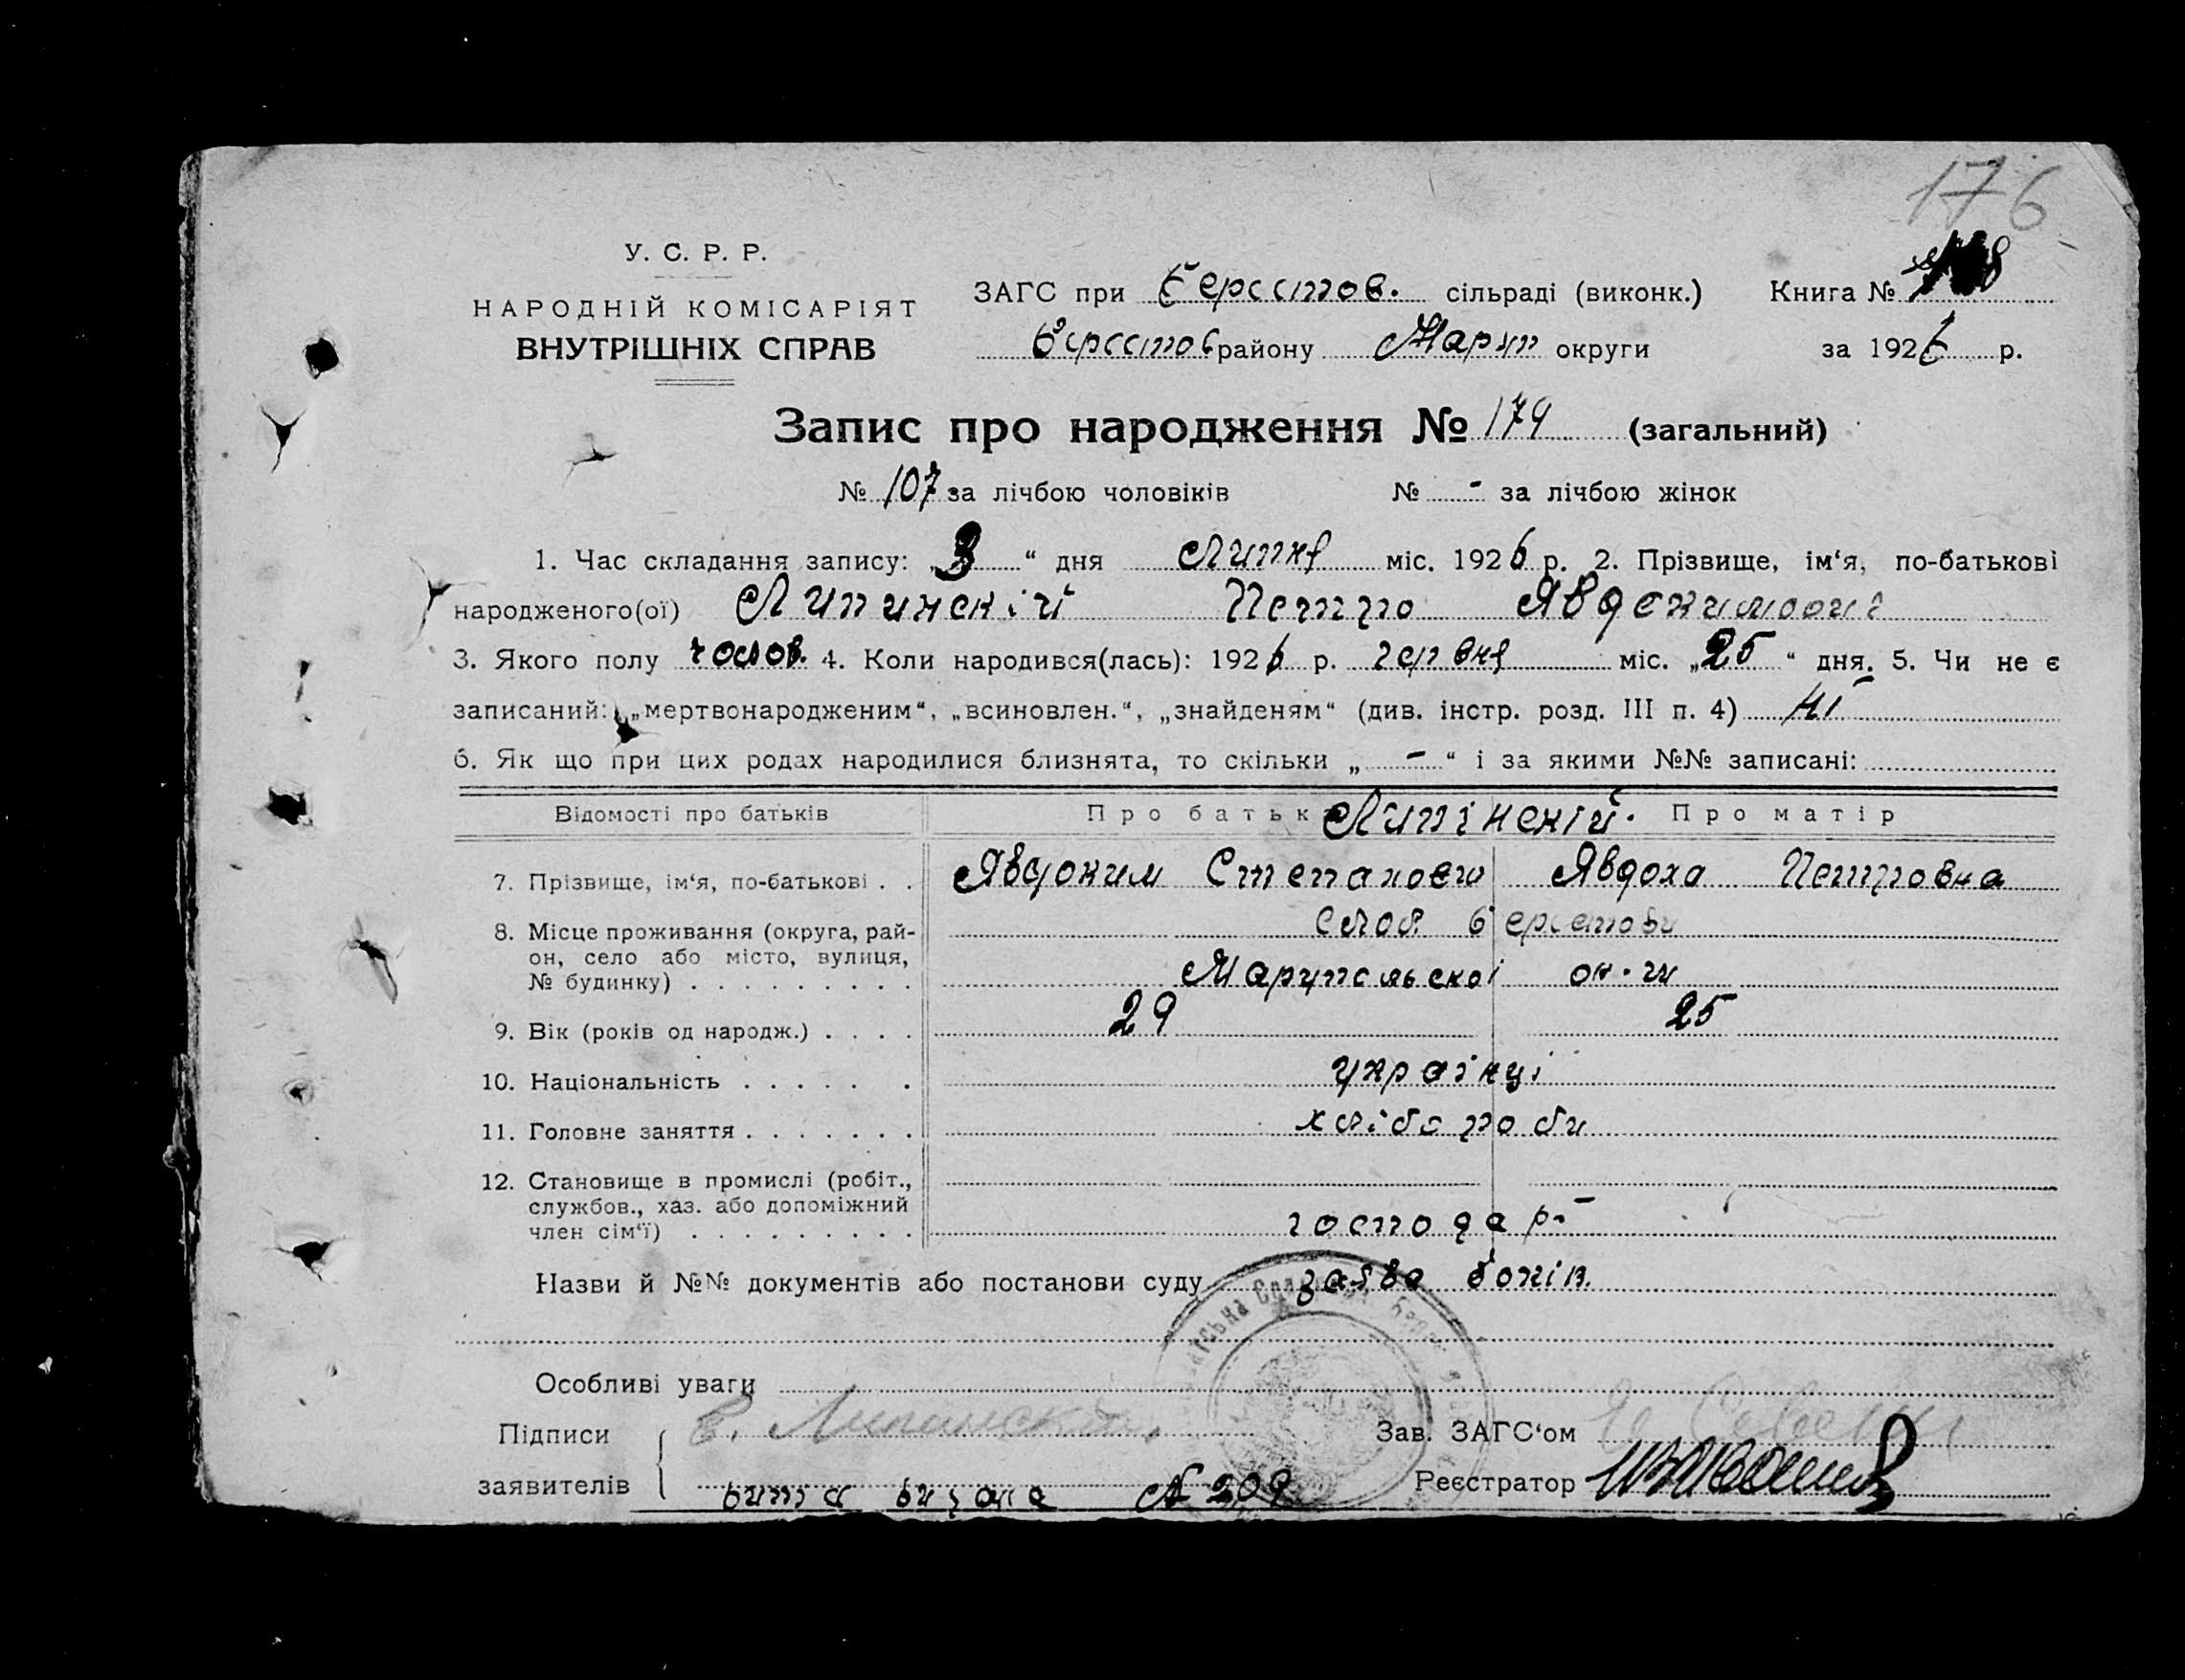 176
У. С. Р. Р.
НАРОДНІЙ КОМІСАРІЯТ
ВНУТРІШНІХ СПРАВ
ЗАГС при Берестов. сільраді (виконк.) Книга №
Берестов району Марип округи за 1926 р.
Запис про народження № 179 (загальний)
№ 107 за лічбою чоловіків № - за лічбою жінок
1. Час складання запису: „3“ дня Липня міс. 1926 р. 2. Прізвище, ім‘я, по-батькові
народженого(ої) Липинскій Петро
3. Якого полу чолов. 4. Коли народився(лась): 1926 р. червня міс. „25“ дня. 5. Чи не є
записаний: „мертвонародженим“, „всиновлен.“, „знайденям“ (див. інстр. розд. III п. 4) ні
6. Як що при цих родах народилися близнята, то скільки „-“ і за якими №№ записані:
Відомості про батьків Про батьк Липінскій. Про матір
7. Прізвище, ім‘я, по-батькові . . Явдоким Степанович Явдоха Петровна
8. Місце проживання (округа, рай-
он, село або місто, вулиця,
№ будинку) . . . . . . . . .
Слоб Берестови
Марупольскоі ок-ги
9. Вік (років од народж.) . . . . 29 25
10. Національність . . . . . . українці
11. Головне заняття . . . . . . . хлібороби
12. Становище в промислі (робіт.,
службов., хаз. або допоміжний
член сім‘ї) . . . . . . . . .
господарі
Назви й №№ документів або постанови суду заява
Особливі уваги
Підписи
заявителів
Е. Липинский
№ 209
Зав. ЗАГС‘ом
Реєстратор